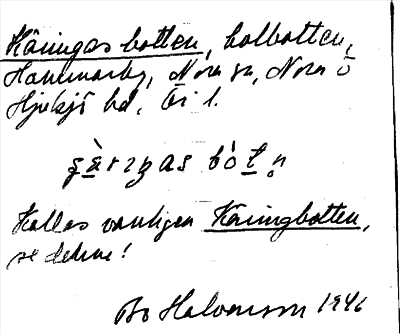 Käringasbotten, kolbotten,
Hammarby, Nora sn, Nora o
Hjulsjö bd, Ör l.
bò̀t̲n̥
Kallas vanligen Käringbotten,
se denna!
Bo Halvarson 1946